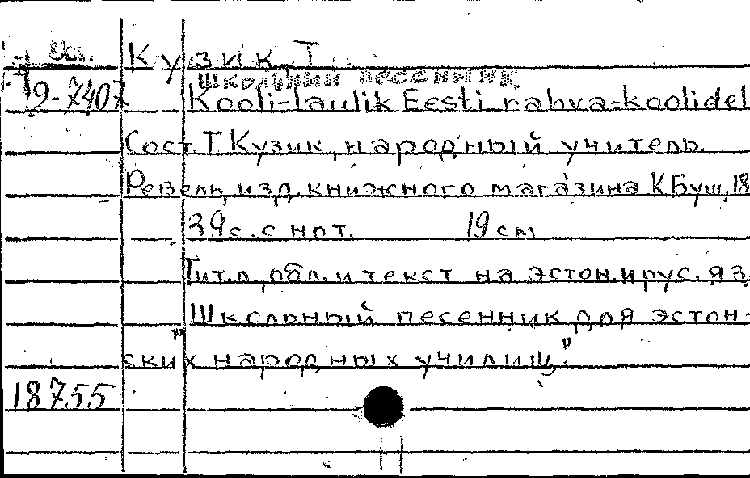 Кузик, Т.
Школьный песенник
9-7407 Kooli-laulik Eesti rahva-koolidel
Сост. Т. Кузик, народный учитель.
Ревель, изд. книжного магазина К. Буш, 18
39 с. с нот. 19 см
Тит. л., обл. и текст на эстон. и рус. яз.
"Школьный песенник для эстон-
ских народных училищ."
18755